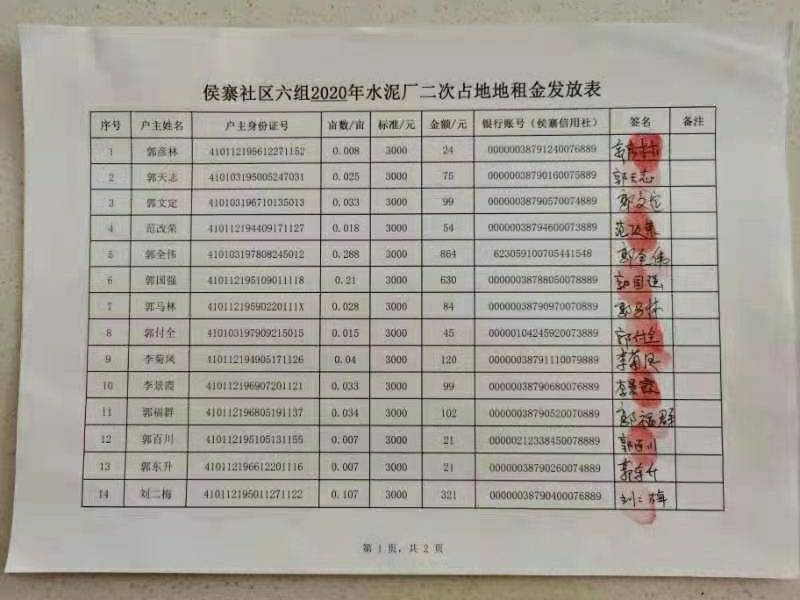 侯寨社区六组2020年水泥厂二次占地地租金发放表
序号 户主姓名 户主身份证号 亩数/亩 标准/元 金额/元 银行账号（侯寨信用社） 签名 备注
1 郭彦林 410112195612271152 0.008 3000 24 00000038791240076889
2 郭天志 410103195005247031 0.025 3000 75 00000038790160075889 郭天志
3 郭文定 410103196710135013 0.033 3000 99 00000038790570074889 郭文定
4 范改荣 410112194409171127 0.018 3000 54 00000038794600073889 范改荣
5 郭全伟 410103197808245012 0.288 3000 864 623059100705441548 郭全伟
6 郭国强 410112195109011118 0.21 3000 630 00000038788050078889 郭国强
7 郭马林 41011219590220111X 0.028 3000 84 00000038790970070889 郭马林
8 郭付全 410103197909215015 0.015 3000 45 00000104245920073889 郭付全
9 李菊凤 410112194905171126 0.04 3000 120 00000038791110079889 李菊凤
10 李景霞 410112196907201121 0.033 3000 99 00000038790680076889 李景霞
11 郭福群 410112196805191137 0.034 3000 102 00000038790520070889 郭福群
12 郭百川 410112195105131155 0.007 3000 21 00000212338450078889 郭百川
13 郭东升 410112196612201116 0.007 3000 21 00000038790260074889 郭东升
14 刘二梅 410112195011271122 0.107 3000 321 00000038790400076889 刘二梅
第 1 页，共 2 页